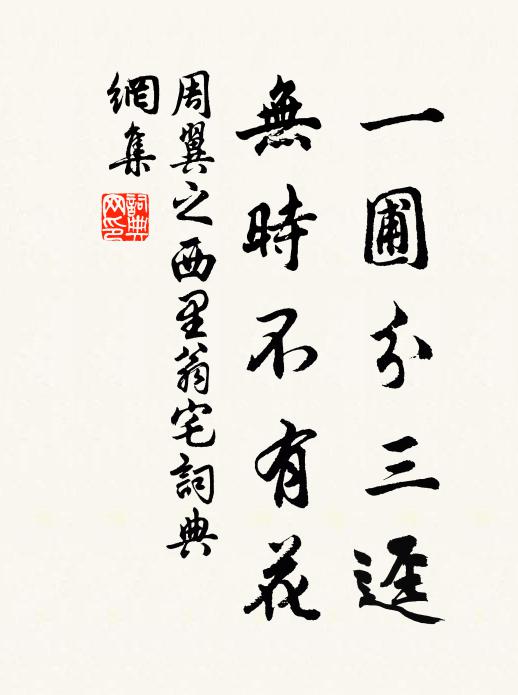 一圃分三逕
無時不有花
周翼之西里翁宅詞典
網集
詞典
网印